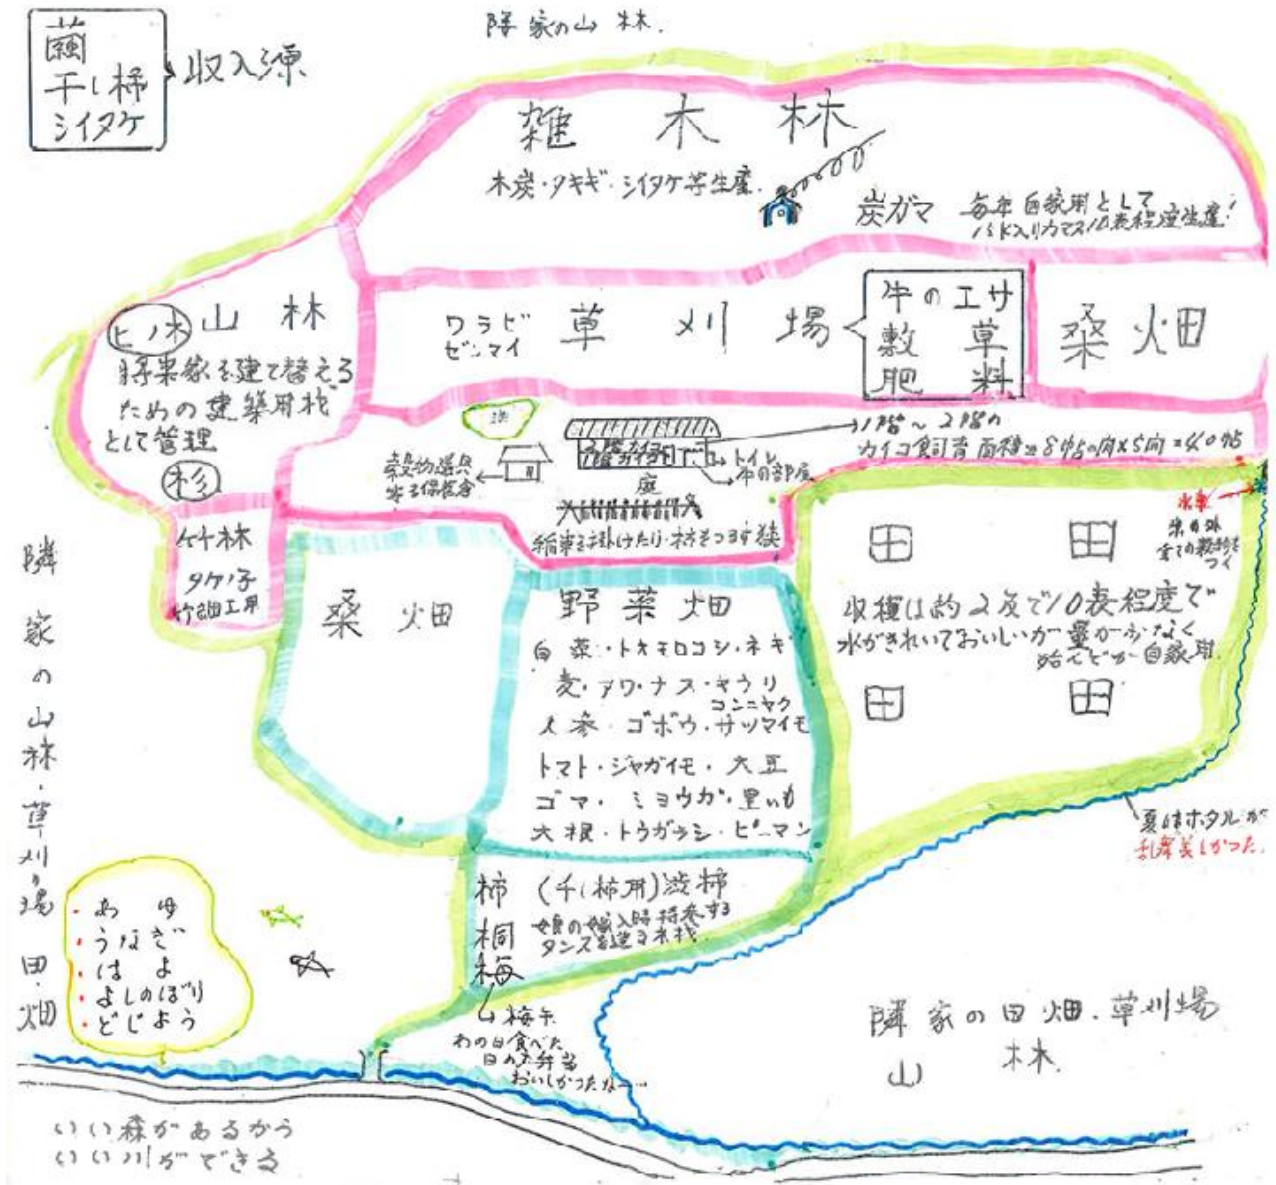 繭
干し柿
シイタケ
収入源
隣家の山林.
雑木林
木炭・タキギ・シイタケ等生産.
炭ガマ
毎年自家用として
15K入りカマス10表程度生産!
ヒノ木
山林
将来家を建て替える
ための建築用材
として管理
杉
ワラビ
ゼンマイ
草刈場
牛のエサ
敷草
肥料
桑畑
池
穀物道具
米を保管倉
2階カイコ
1階カイコ
トイレ
牛の部屋
庭
1階〜2階の
カイコ飼育面積=8帖の間×5間=40帖
稲束を掛けたり・柿をつるす
竹林
タケノ子
竹細工用
桑畑
野菜畑
白菜・トウモロコシ・ネギ
麦・アワ・ナス・キウリ
コンニャク
人参・ゴボウ・サツマイモ
トマト・ジャガイモ・大豆
ゴマ・ミョウガ・里いも
大根・トウガラシ・ピーマン
水車
米の外
全ての穀物を
つく
田 田
収穫は約2反で10表程度で
水がきれいでおいしいが量が少なく
殆んどが自家用.
田 田
夏はホタルが
乱舞美しかった.
柿(干し柿用)渋柿
桐
娘の嫁入時持参する
タンスを造る木材
梅
梅干
あの日食べた
日の丸弁当
おいしかったな〜…
隣家の山林・草刈り場 田・畑
・あゆ
・うなぎ
・はよ
・よしのぼり
・どじょう
隣家の田畑・草刈場
山林
いい森があるから
いい川ができる